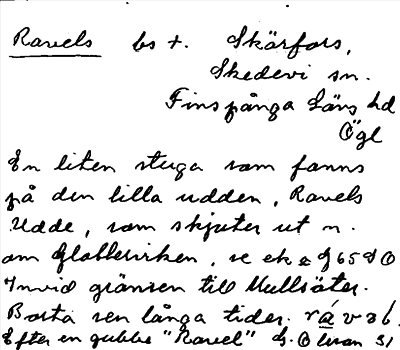 Ravels bs t. Skärfors,
Skedevi sn.
Finspånga Läns hd
Ögl
En liten stuga som fanns
på den lilla udden, Ravels
Udde, som skjuter ut n.
om Glottervisken, se ek J65
Invid gränsen till Kullsäter.
Borta sen långa tider. ráv
Efter en gubbe "Ravel" 31